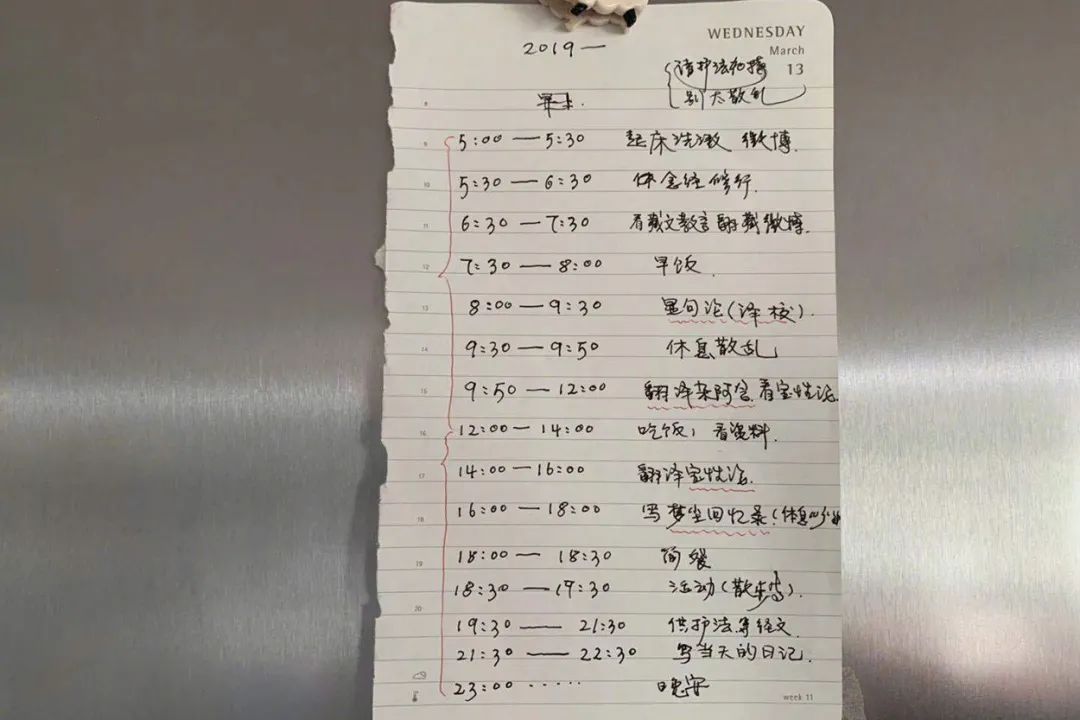 WEDNESDAY
March
13
2019一
请护法加持
别太散乱
早上.
8
9 5:00 — 5:30 起床洗漱 微博.
10 5:30 — 6:30 念经修行.
11 6:30 — 7:30 看藏文教言 翻藏微博.
12 7:30 — 8:00 早饭.
13 8:00 — 9:30 显句论(译校).
14 9:30 — 9:50 休息散乱
15 9:50 — 12:00 翻译杂阿含.看宝性论.
16 12:00 — 14:00 吃饭,看资料.
17 14:00 — 16:00 翻译宝性论.
18 16:00 — 18:00 写梦尘回忆录(休息
19 18:00 — 18:30 简餐
18:30 — 19:30 活动(散步等).
20 19:30 — 21:30 供护法等经文.
21:30 — 22:30 写当天的日记.
23:00 ····· 晚安
week 11